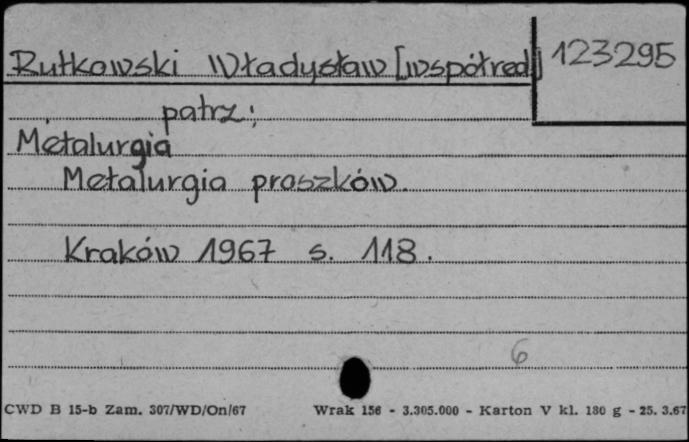 Rutkowski Władysław [współred] 123295
patrz:
Metalurgia
Metalurgia proszków.
Kraków 1967 s. 118.
6
CWD B 15-b Zam. 307/WD/On/67 Wrak 156 - 3.305.000 - Karton V kl. 180 g - 25. 3.67